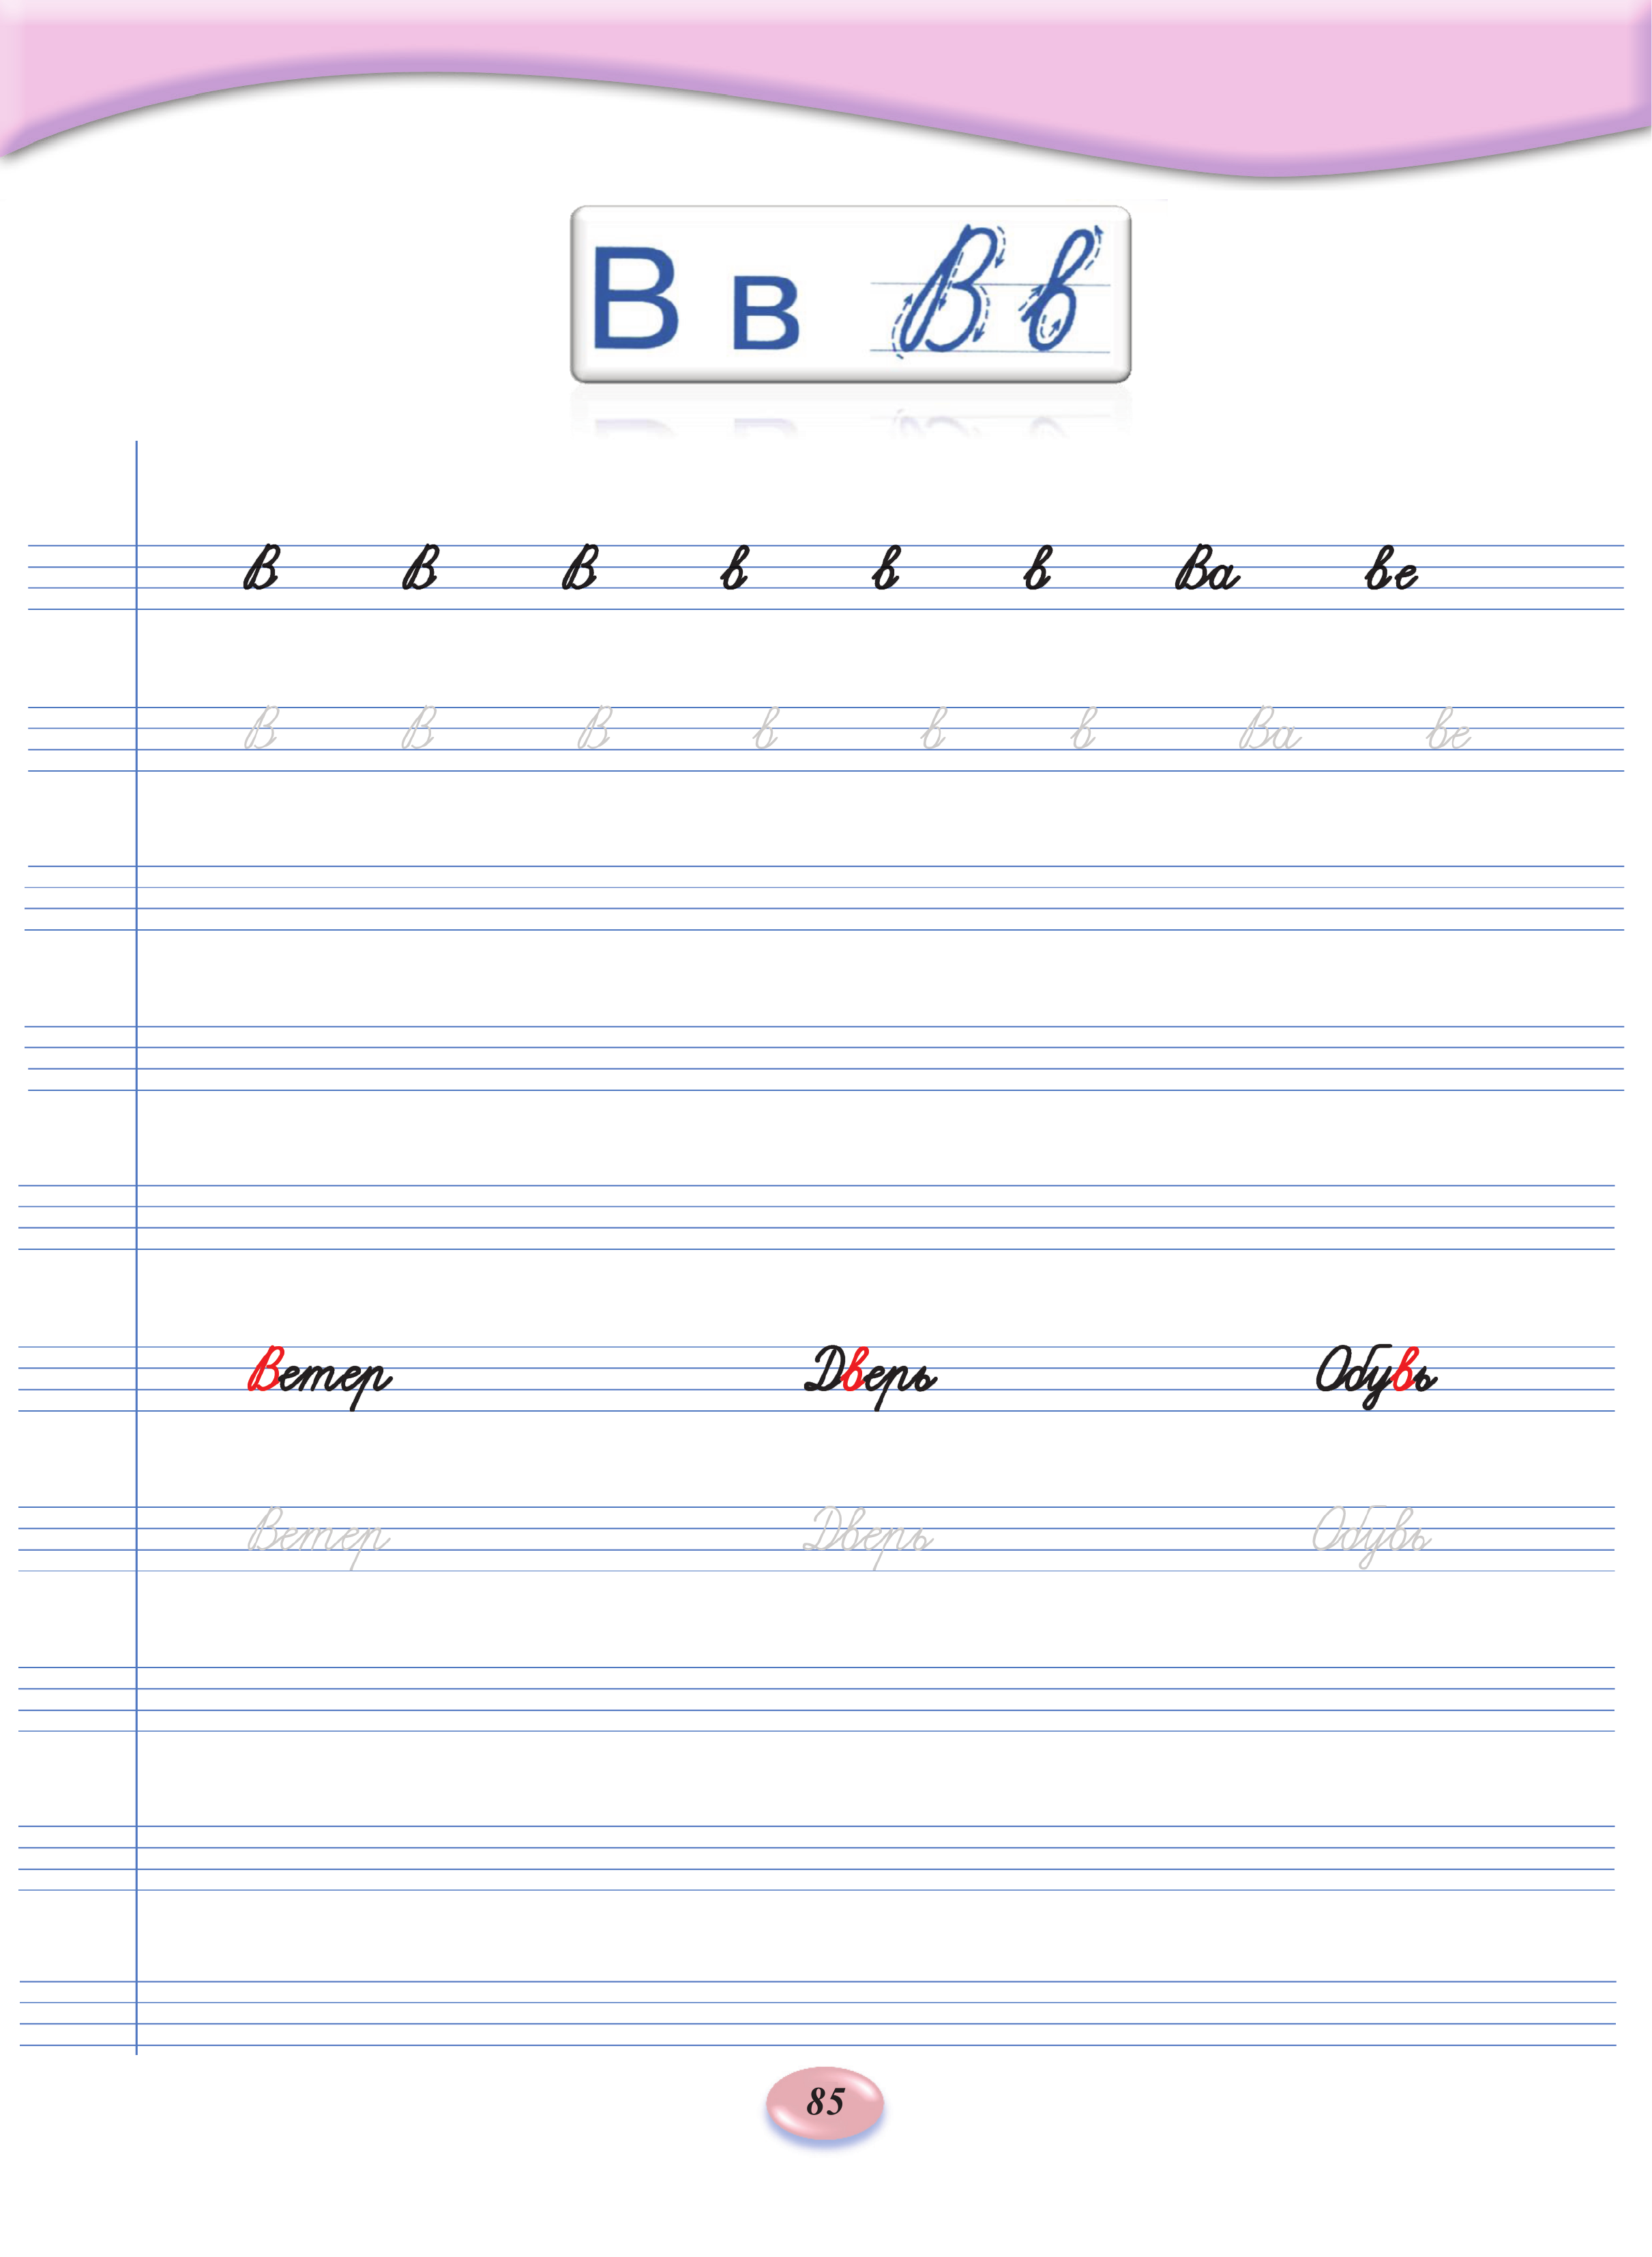 В в В в
В В В в в в Ва ве
В В В в в в Ва ве
Ветер Дверь Обувь
Ветер Дверь Обувь
85